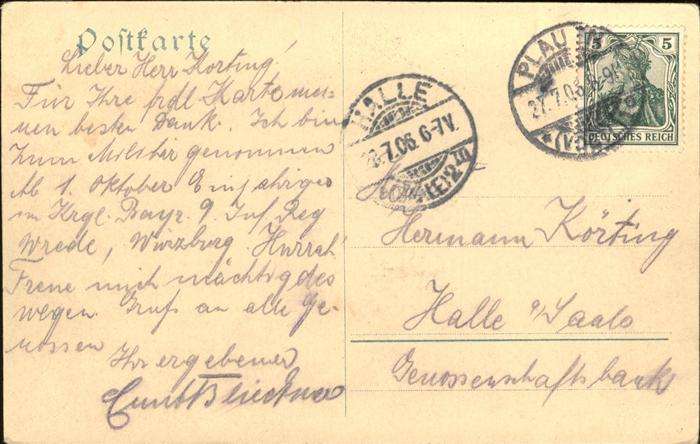 Postkarte
Lieber Herr Körting!
Für Ihre frdl. Karte mei-
nen besten Dank. Ich bin
zum Militär genommen
Ab 1. Oktober Einjähriger
im Kgl. Bayr. 9. Inf. Reg
Wrede, Würzburg. Hurrah!
Freue mich mächtig des
wegen. Gruß an alle Ge-
nossen
Ihr ergebener
HALLE
7.06 6-7V.
PLAU
27.7.06
5 5
DEUTSCHES REICH
Hermann Körting
Halle a/Saale
Genossenschaftsbank